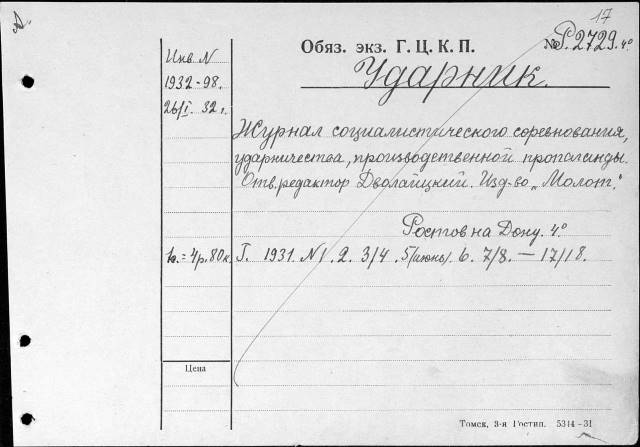 17
Обяз. экз. Г. Ц. К. П. № Р. 2729. 4º
Ударник.
Инв. N
1932-98.
26/I. 32 г.
Журнал социалистического соревнования,
ударничества, производственной пропаганды.
Отв. редактор Дволайцкий. Изд-во „Молот."
Ростов на Дону. 4º
= 4 р. 80 к. Г. 1931. N 1. 2. 3/4. 5 (июнь). 6. 7/8. — 17/18.
Цена
Томск, 3-я Гостип. 5314—31